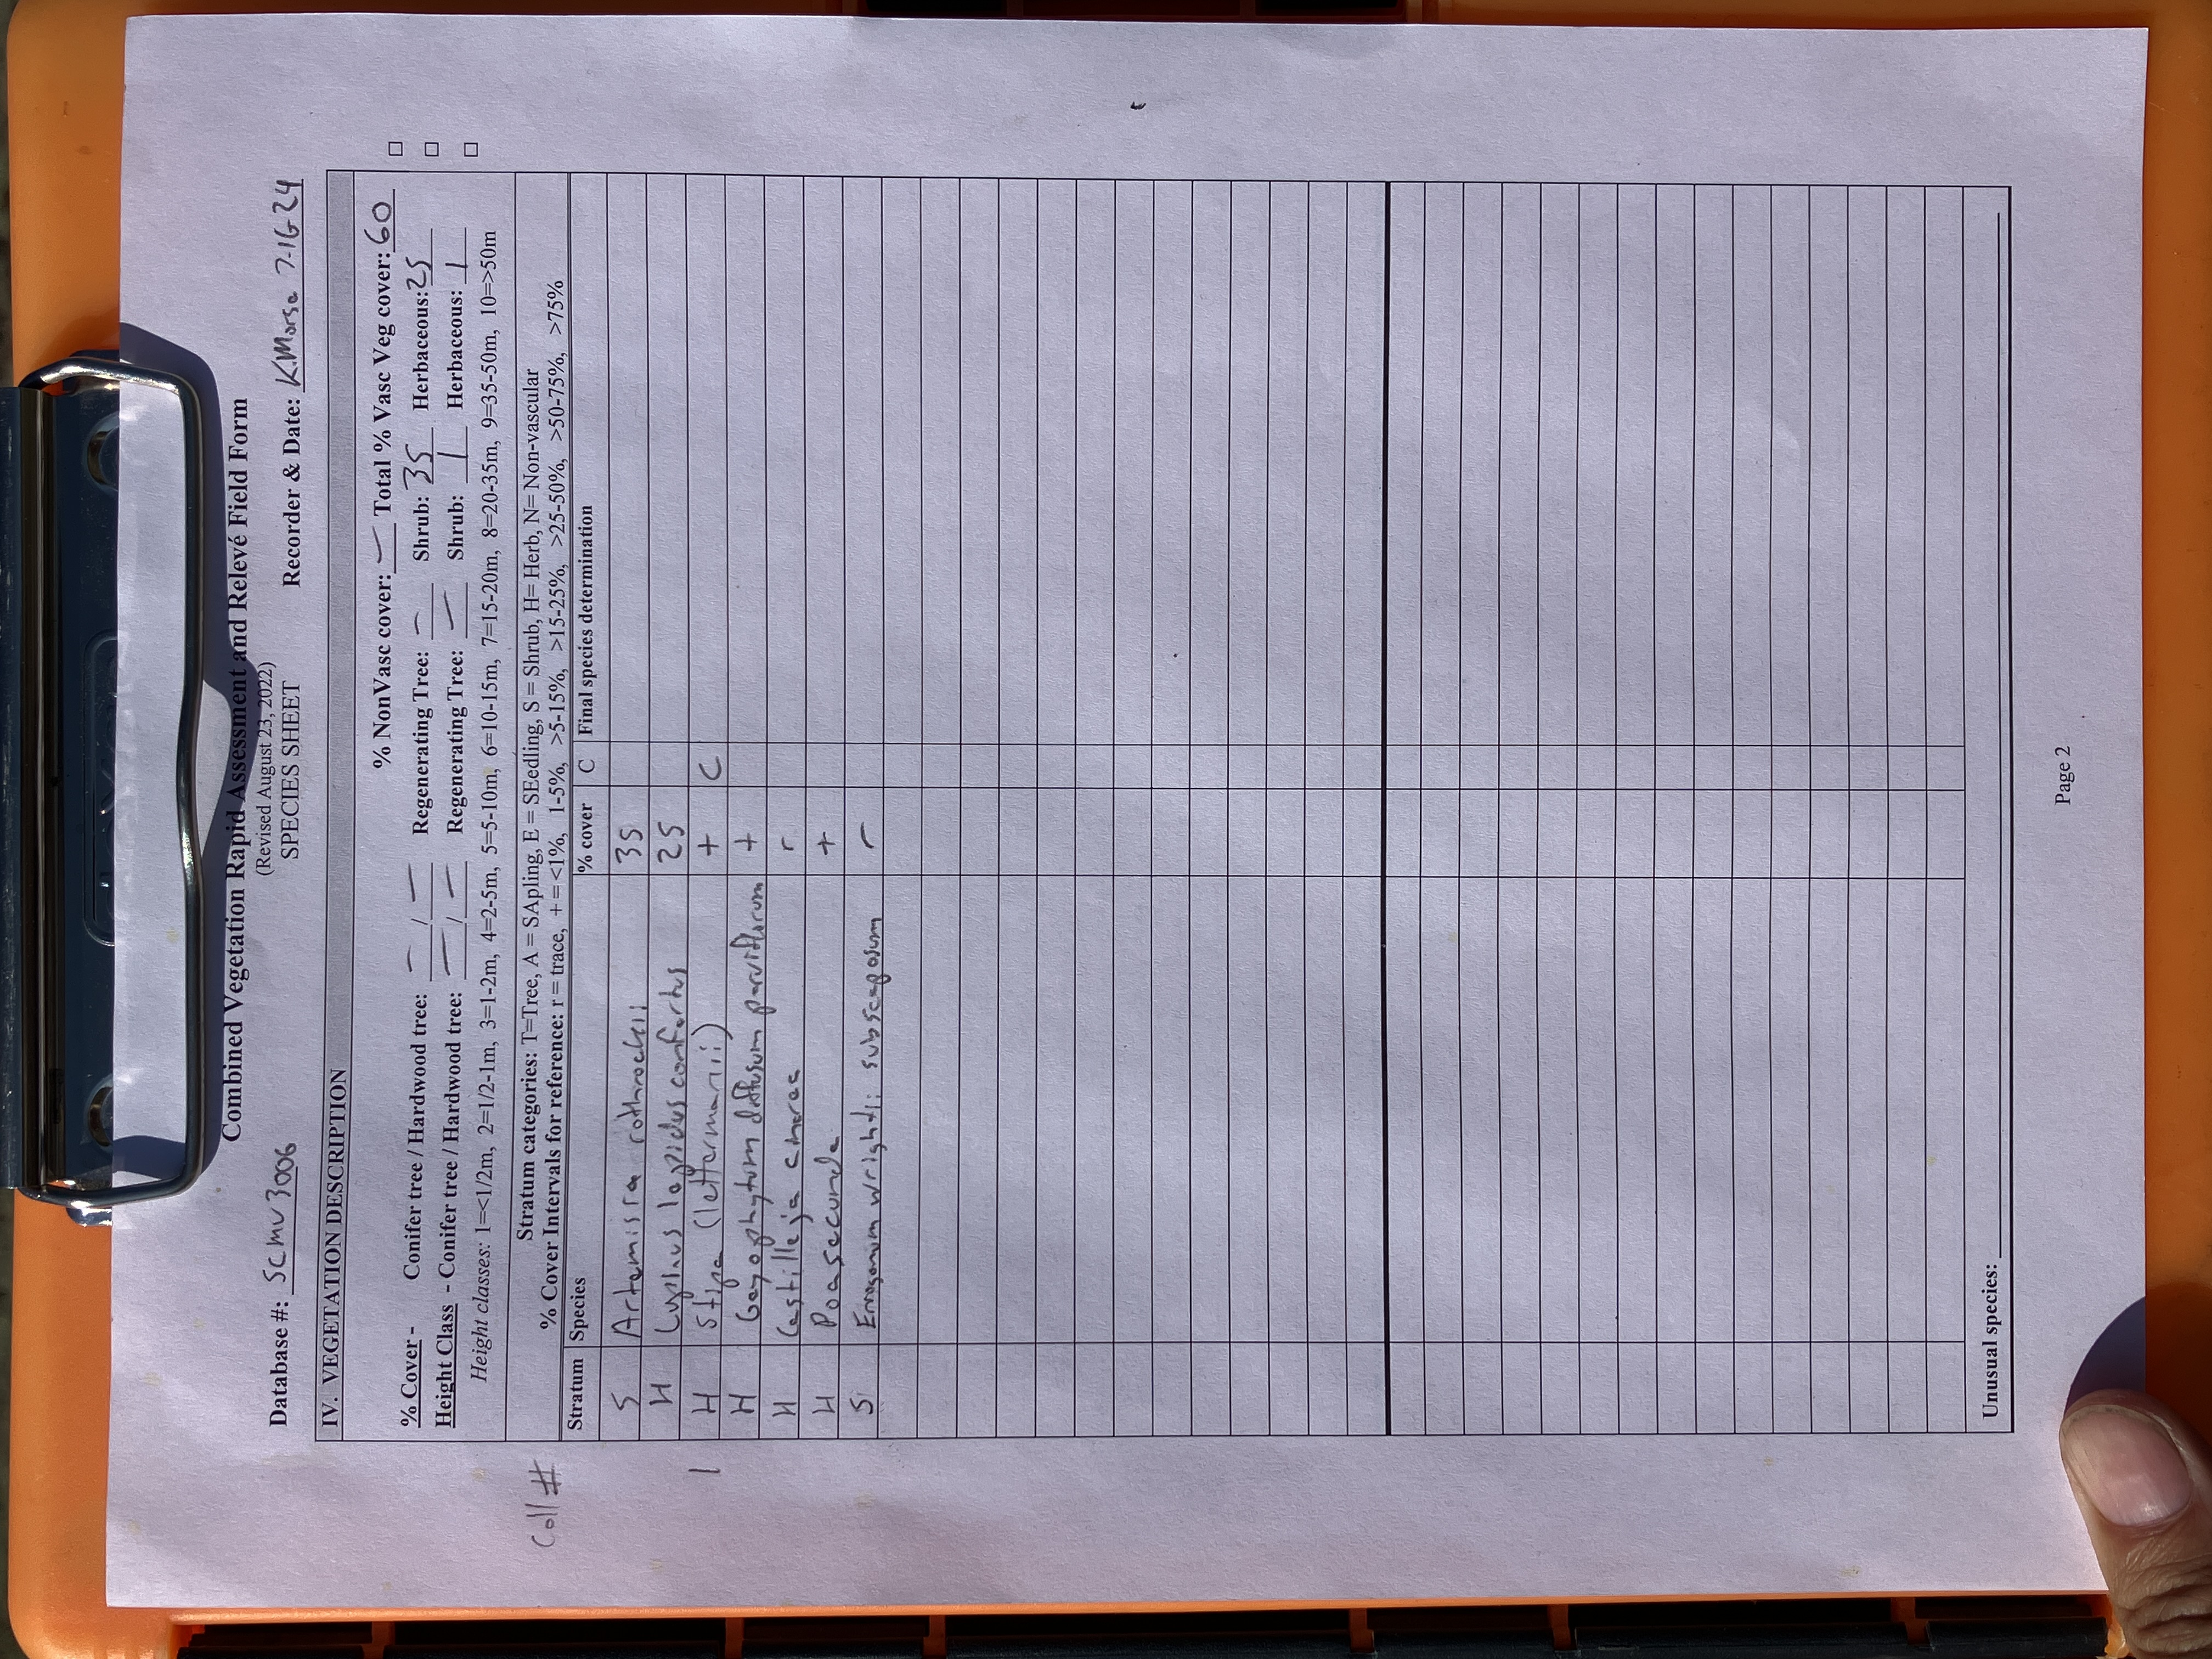 Combined Vegetation Rapid Assessment and Relevé Field Form
(Revised August 23, 2022)
SPECIES SHEET
Database #: Scmv3006 Recorder & Date: KMorse 7-16-24
IV. VEGETATION DESCRIPTION
% NonVasc cover: — Total % Vasc Veg cover: 60 □
% Cover - Conifer tree / Hardwood tree: — / — Regenerating Tree: — Shrub: 35 Herbaceous: 25 □
Height Class - Conifer tree / Hardwood tree: — / — Regenerating Tree: — Shrub: 1 Herbaceous: 1 □
Height classes: 1=<1/2m, 2=1/2-1m, 3=1-2m, 4=2-5m, 5=5-10m, 6=10-15m, 7=15-20m, 8=20-35m, 9=35-50m, 10=>50m
Coll #
Stratum categories: T=Tree, A = SApling, E = SEedling, S = Shrub, H= Herb, N= Non-vascular
% Cover Intervals for reference: r = trace, + = <1%, 1-5%, >5-15%, >15-25%, >25-50%, >50-75%, >75%
Stratum Species % cover C Final species determination
S Artemisia rothrockii 35
H Lupinus lepidus confertus 25
1 H Stipa (lettermanii) + C
H Gayophytum diffusum parviflorum +
H Castilleja cinerea r
H Poa secunda +
S Eriogonum wrightii subscaposum r
Unusual species:
Page 2